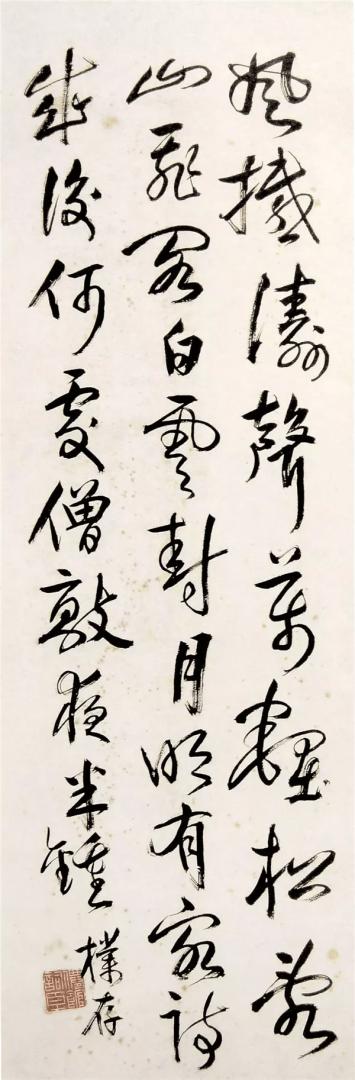 風撼濤聲萬壑松
山飛閣白雲封月明有客詩
成後何處僧敲夜半鐘
樸存